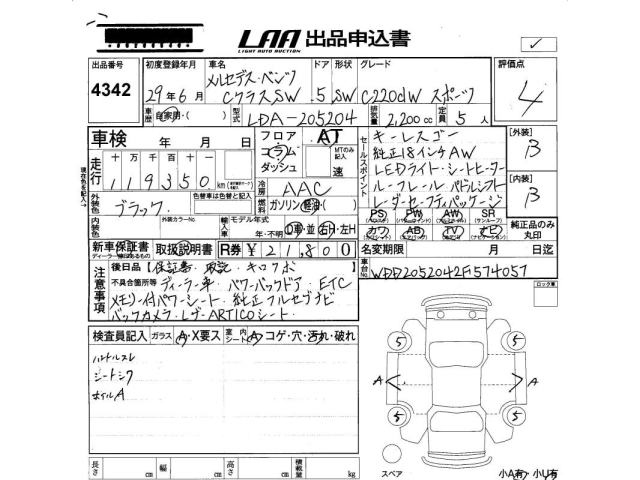 LAA 出品申込書
LIGHT AUTO AUCTION
出品番号 初度登録年月 車名 ドア 形状 グレード 評価点
4342 29年6月 メルセデス・ベンツ
CクラスSW 5 SW C220dW スポーツ 4
車歴 自家用・( ) 型式 LDA-205204 排気量 2,200cc 定員 5人
車検 年 月 日 フロア コラム ダッシュ AT MTのみ記入 速
セールスポイント キーレスゴー
純正18インチAW
LEDライト・シートヒーター
ルーフレール パドルシフト
レーダーセーフティパッケージ
[外装] B
[内装] B
走行 十万千百十 119350km
冷房 AAC
外装色 ブラック 色替車は色替と記入 燃料 ガソリン・軽油・( )
内装色 外装カラーNo. 輸入車 モデル年式 年・不明 D車・並 右H・左H
PS AW PW SR
カワ AB TV ナビ
純正品のみ丸印
新車保証書 取扱説明書 R券 ¥21,800 名変期限 月 日迄
ディーラー印があるもの
注意事項 後日品【保証書・取説・キロフボ
不具合箇所等 ディーラー車・パワーバックドア・ETC
メモリー付パワーシート・純正フルセグナビ
バックカメラ・レザーARTICOシート・
車台No. WDD2052042F574057
ロック車
検査員記入 ガラス A・X要ス 室内シート A・コゲ・穴・汚れ・破れ
ハンドルスレ
シートシワ
ホイルA
5 5
A A
5 5
スペア
小A有 小U有
長さ cm 幅 cm 高さ cm 積載量 kg